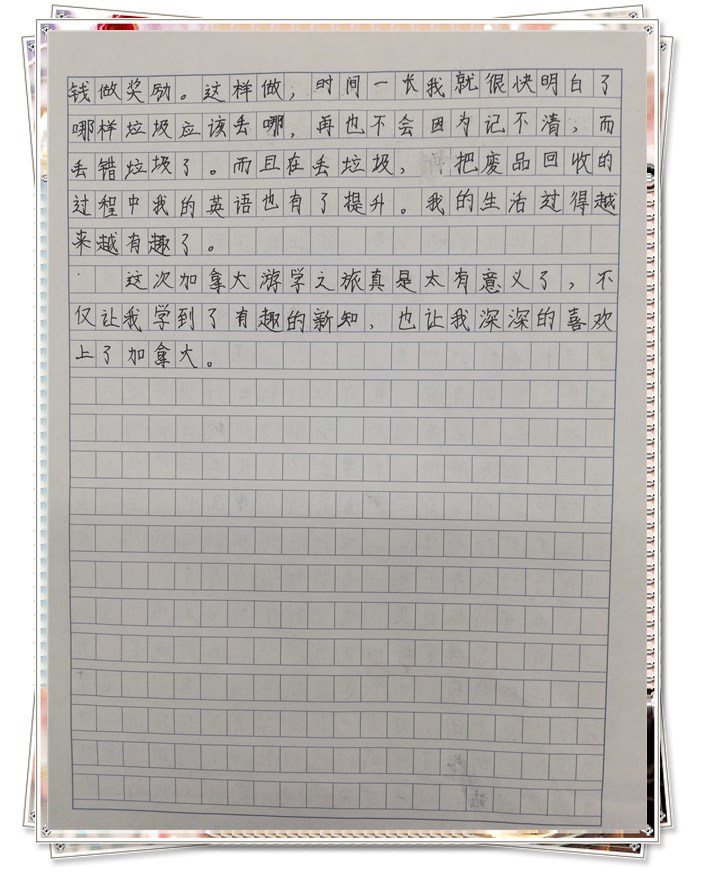 钱做奖励。这样做，时间一长我就很快明白了
哪样垃圾应该丢哪，再也不会因为记不清，而
丢错垃圾了。而且在丢垃圾，把废品回收的
过程中我的英语也有了提升。我的生活过得越
来越有趣了。
这次加拿大游学之旅真是太有意义了，不
仅让我学到了有趣的新知，也让我深深的喜欢
上了加拿大。